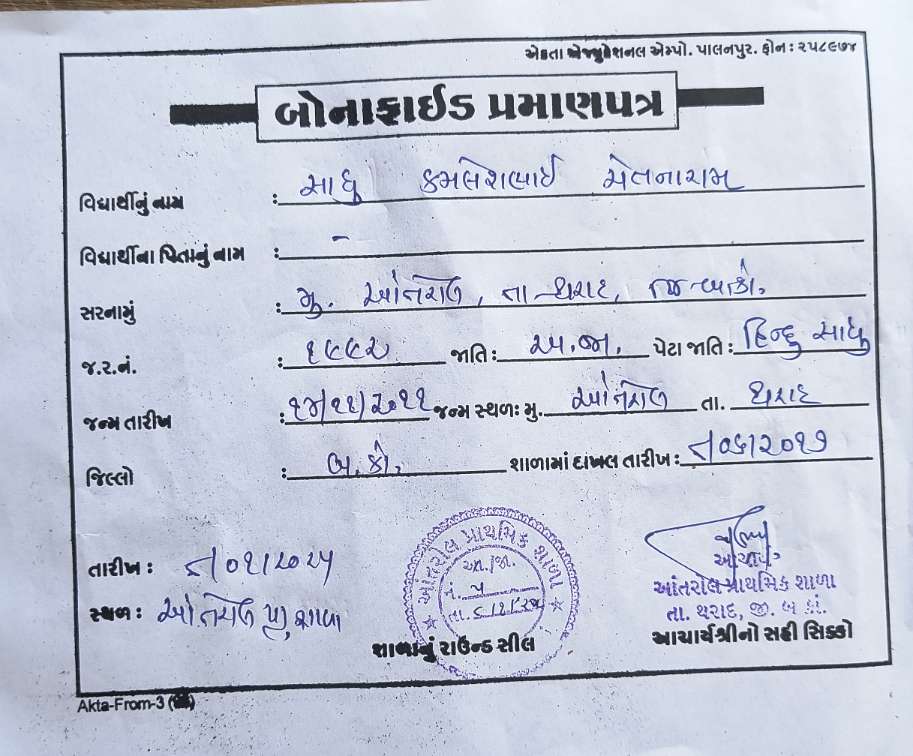 એકતા એજ્યુકેશનલ એમ્પો. પાલનપુર. ફોન : ૨૫૮૯૭૪
બોનાફાઈડ પ્રમાણપત્ર
વિદ્યાર્થીનું નામ : સાધુ કમલેશભાઈ ચેતનારામ
વિદ્યાર્થીના પિતાનું નામ : -
સરનામું : મુ. આંતરોલ, તા-થરાદ,
જ.ર.નં. : ૧૯૯૨ જાતિ : અ.જા. પેટા જાતિ : હિન્દુ સાધુ
જન્મ તારીખ : ૧૪/૧૧/૨૦૧૧ જન્મ સ્થળઃ મુ. આંતરોલ તા. થરાદ
જિલ્લો : બ.કાં. શાળામાં દાખલ તારીખ :
તારીખ :
સ્થળ : આંતરોલ પ્રા. શાળા
આંતરોલ પ્રાથમિક શાળા
નં. ૫
તા.
શાળાનું રાઉન્ડ સીલ
આચાર્ય
આંતરોલ પ્રાથમિક શાળા
તા. થરાદ, જી. બ કાં.
આચાર્યશ્રીનો સહી સિક્કો
Akta-From-3